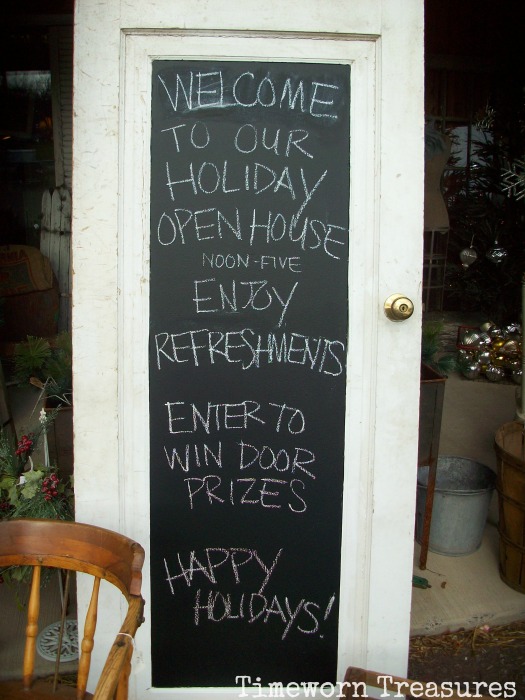 WELCOME
TO OUR
HOLIDAY
OPEN HOUSE
NOON-FIVE
ENJOY
REFRESHMENTS
ENTER TO
WIN DOOR
PRIZES
HAPPY
HOLIDAYS!
Timeworn Treasures